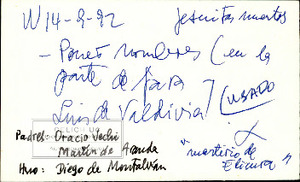 W 14-9-92 Jesuitas muertos
- Poner nombres (en la
parte de
Luis de Valdivia)
USADO
Padre: Oracio Vechi
Martín de Aranda
Hno: Diego de Montalván
"martirio de
Elicura"